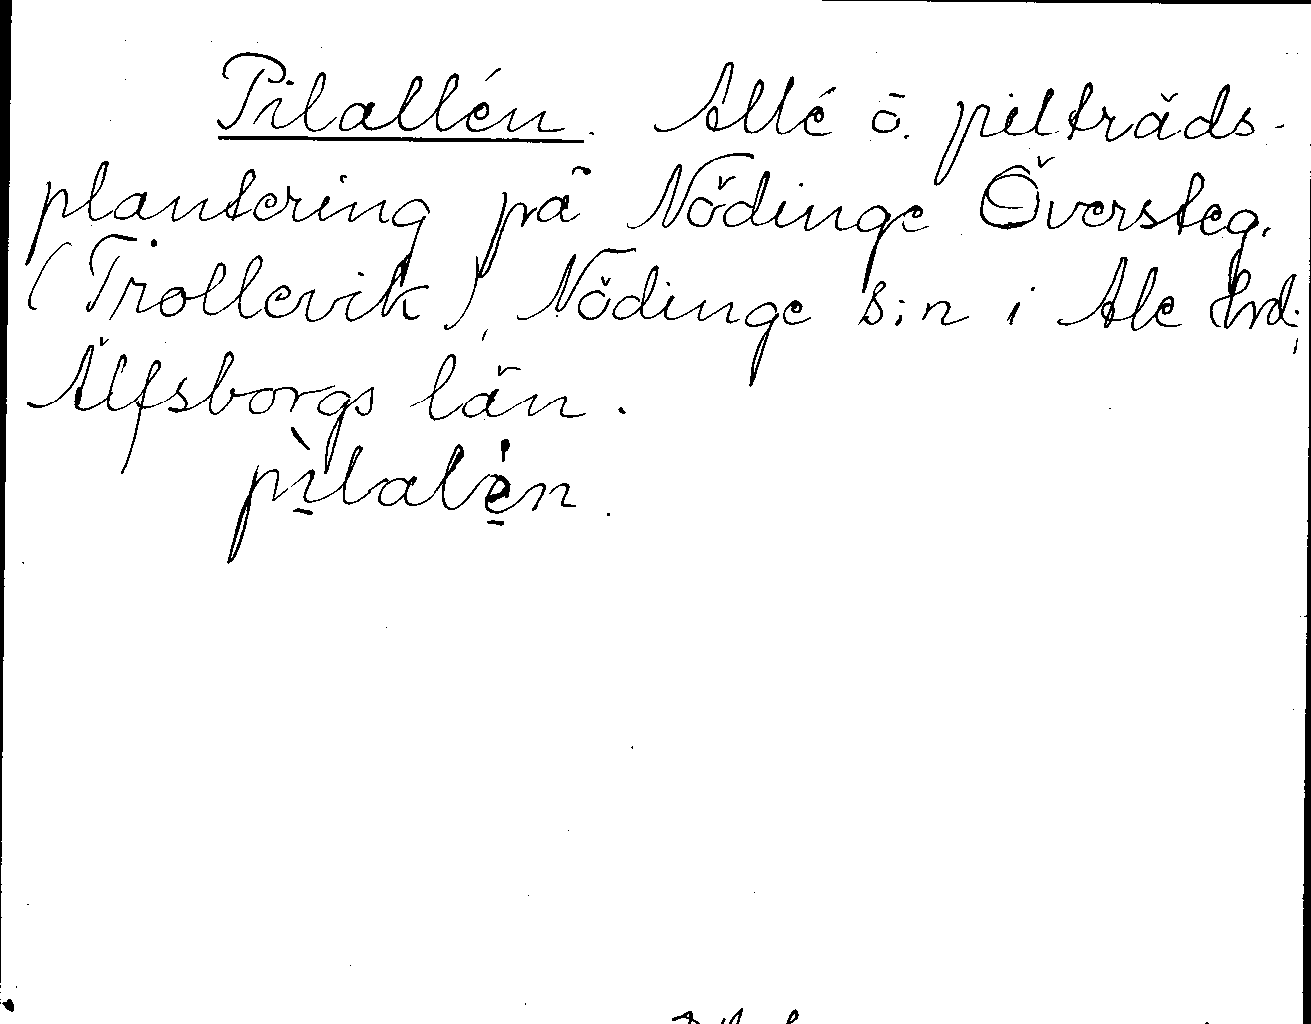 Pilallén. Allé o. pilträds-
plantering på Nödinge Översteg.
(Trollevik), Nödinge s:n i Ale hrd;
Älfsborgs län.
pìlalén.